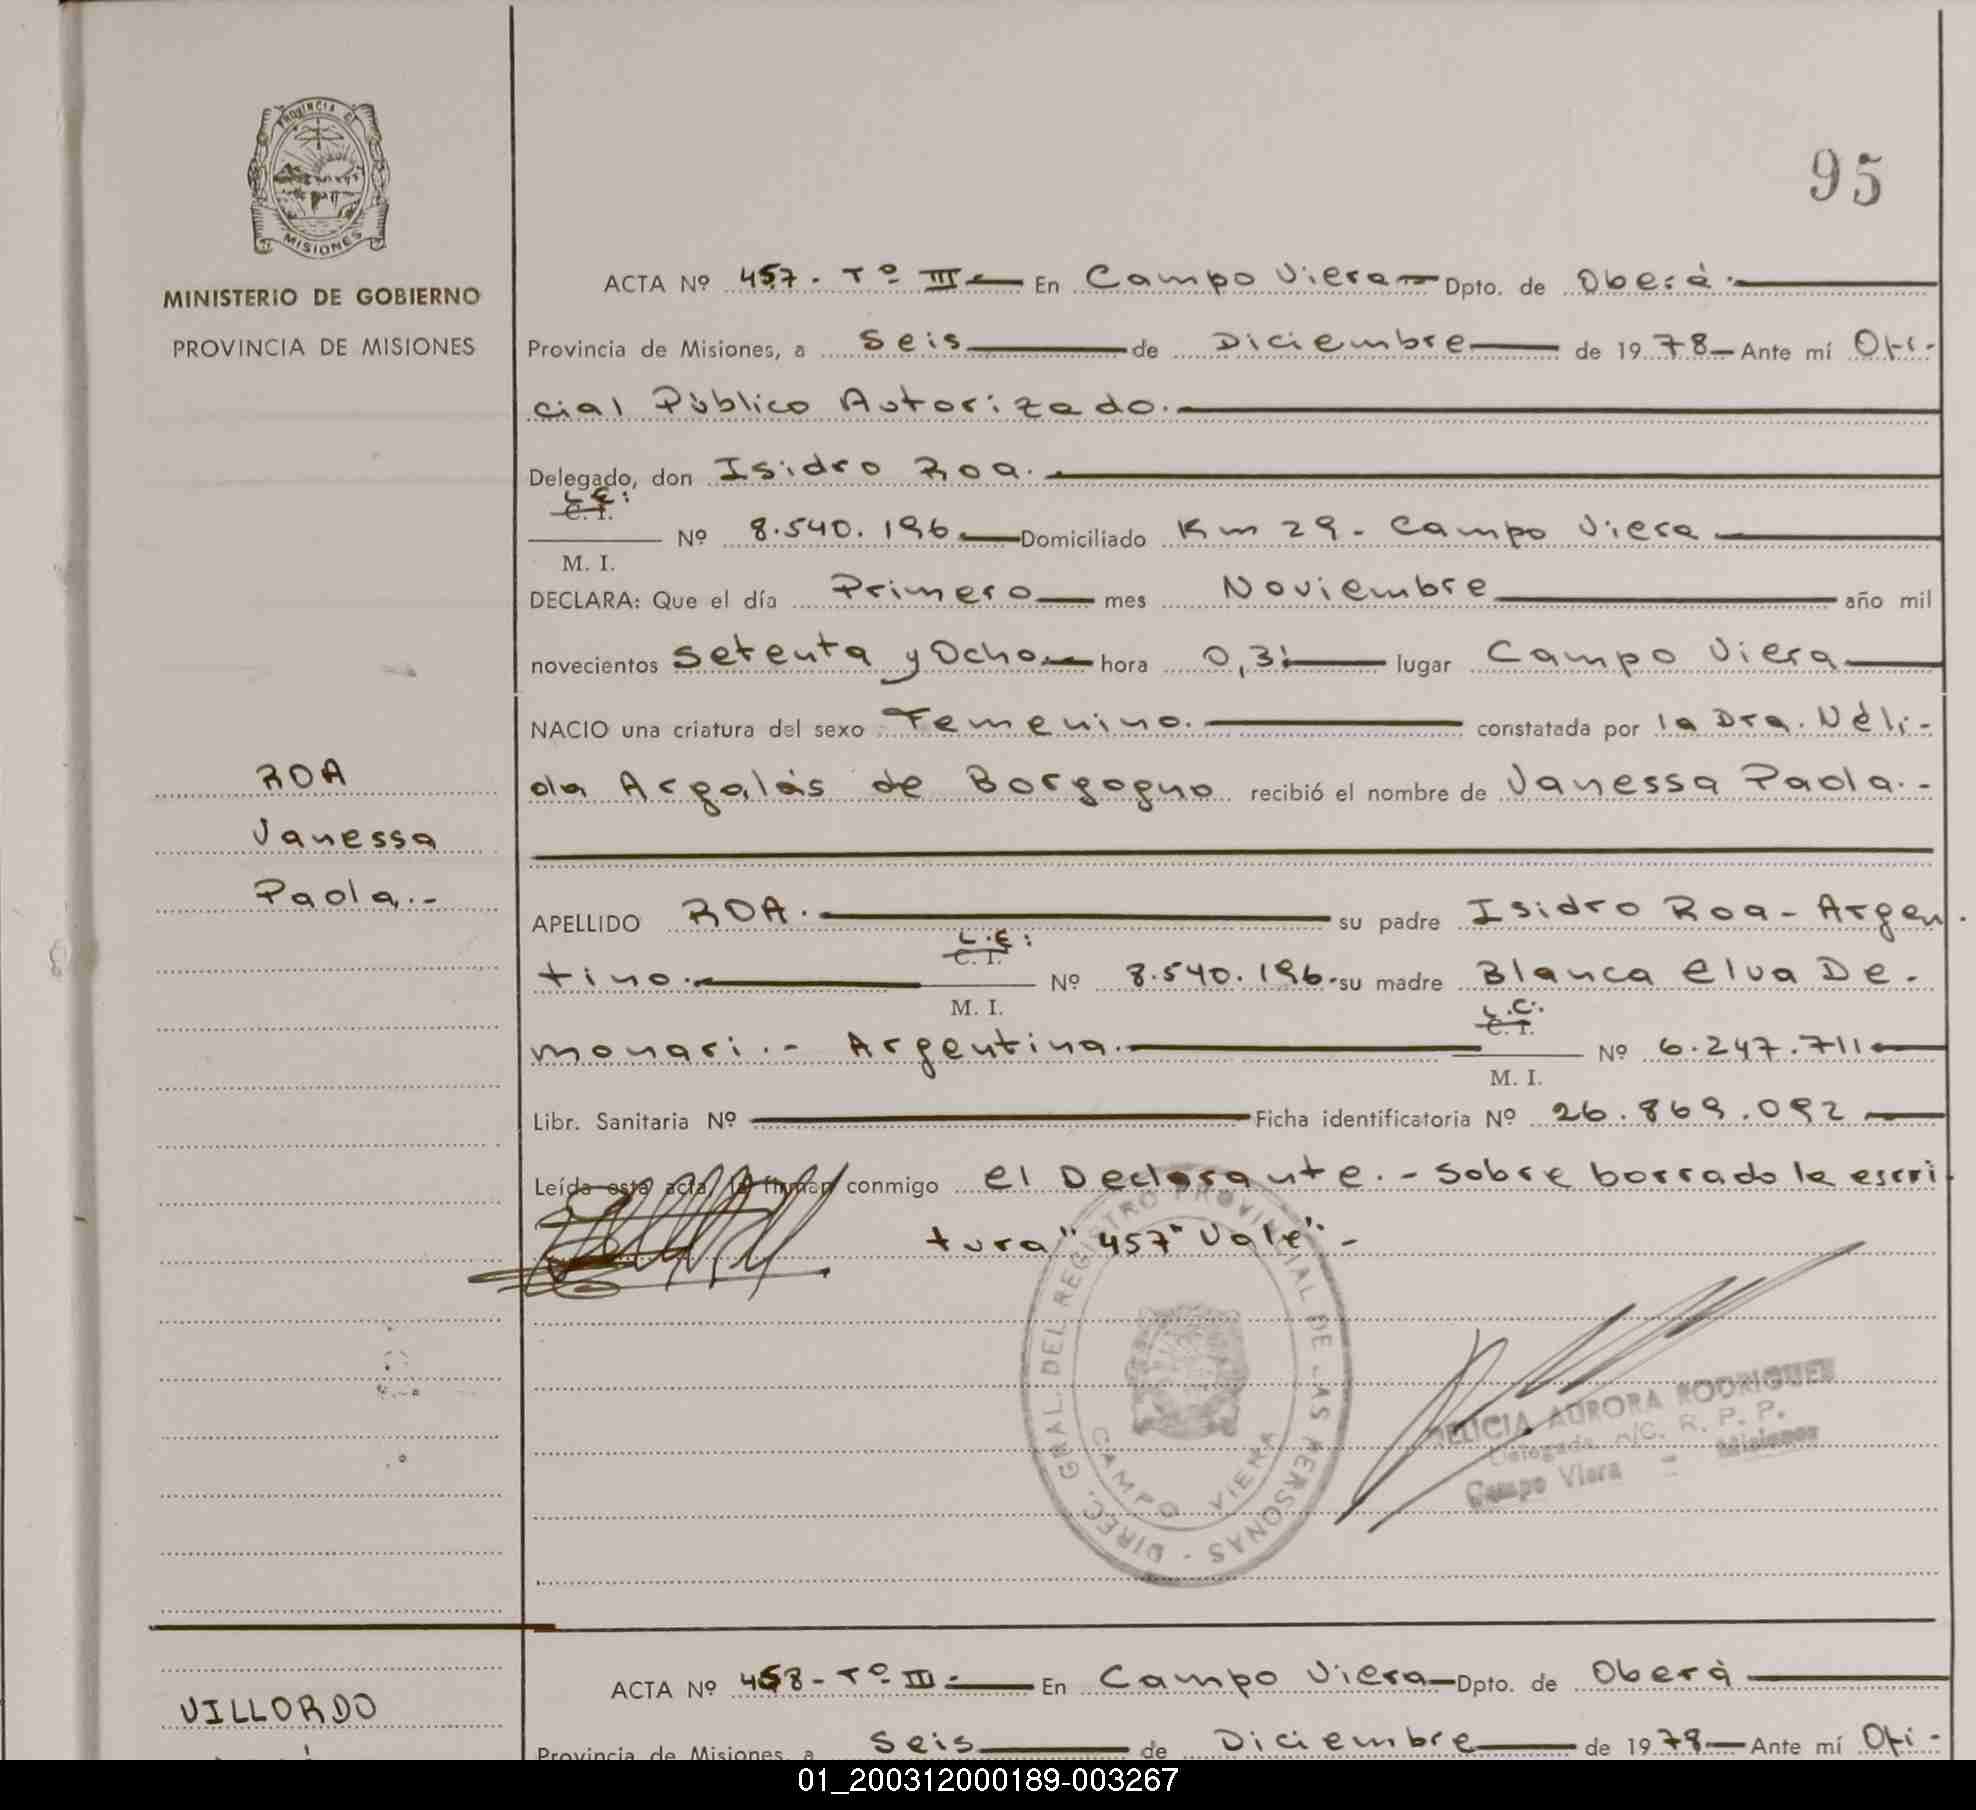 95
PROVINCIA DE
MISIONES
MINISTERIO DE GOBIERNO
PROVINCIA DE MISIONES
ACTA Nº 457. Tº III En Campo Viera Dpto. de Oberá.
Provincia de Misiones, a Seis de Diciembre de 1978 Ante mí Ofi-
cial Público Autorizado.
Delegado, don Isidro Roa.
L.E:
C. I.
M. I.
Nº 8.540.196 Domiciliado Km 29 - Campo Viera
DECLARA: Que el día Primero mes Noviembre año mil
novecientos Setenta y Ocho hora 0,31 lugar Campo Viera
NACIO una criatura del sexo Femenino. constatada por la Dra. Néli-
da Argalás de Borgogno recibió el nombre de Vanessa Paola.-
ROA
Vanessa
Paola.-
APELLIDO ROA. su padre Isidro Roa - Argen
L.E:
C. I.
M. I.
tino. Nº 8.540.196. su madre Blanca Elva De-
L.C:
C. I.
M. I.
monari.- Argentina. Nº 6.247.711
Libr. Sanitaria Nº Ficha identificatoria Nº 26.869.092
Leída esta acta, la firman conmigo el Declarante.- Sobre borrado la escri
tura "457" Vale".-
DIREC. GRAL. DEL REGISTRO PROVINCIAL DE LAS PERSONAS -
CAMPO VIERA
AURORA RODRIGUEZ
Delegada A/C. R. P. P.
Campo Viera - Misiones
ACTA Nº 458 - Tº III. En Campo Viera Dpto. de Oberá
VILLORDO
Provincia de Misiones, a Seis de Diciembre de 1978 Ante mí Ofi-
01_200312000189-003267